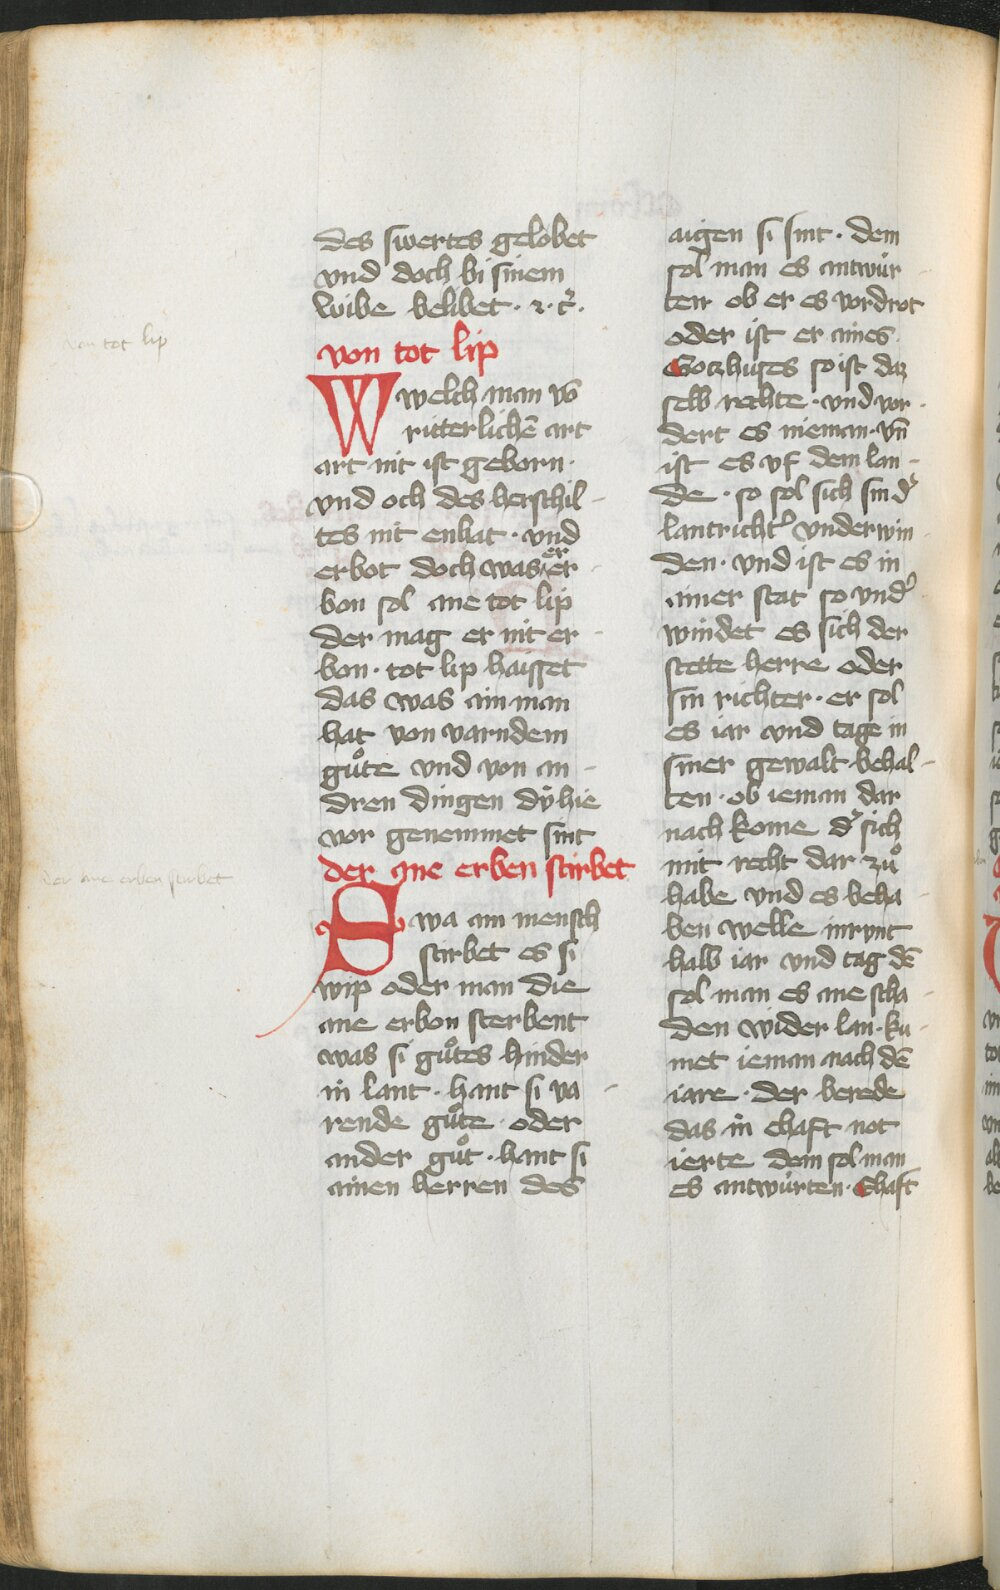 des swertes gelobet
vnd doch bi sinem
wibe belibet · ꝛ · c̄ ·
von tot lip
von tot lip
Wwelch man vō
ritterlichē art
art nit ist geborn ·
vnd och des herschil-
tes nit enhat · vnd
erbot doch was er er-
bon sol ane tot lip
der mag er nit er-
bon · tot lip haisset
das was ain man
hat von varndem
guͦte vnd von an-
dren dingen dÿ hie
vor genemmet sint
der ane erben stirbet
der ane erben stirbet
Swa ain mensch
stirbet es si
wip oder man die
ane erbon sterbent
was si guͦtes hinder
in lant · hant si va-
rende guͦte · oder
ander guͦt · hant si
ainen herren des
aigen si sint · dem
sol man es antwür-
ten ob er es vordrot
oder ist er aines
Gotzhuses so ist daz
selb rechte · vnd vor-
dert es nieman · vn̄
ist es vf dem lan-
de · so sol sich sin dˀ
lantrichtˀ vnderwin-
den · vnd ist es in
ainer stat so vndˀ
windet es sich der
stette herre oder
sin richter · er sol
es iar vnd tage in
siner gewalt behal-
ten · ob ieman dar
nach kome dˀ sich
mit recht dar zuͦ
habe vnd es beha-
ben welle inrynt
halb iar vnd tag dē
sol man es ane scha-
den wider lan · ku-
met ieman nach dē
iare · der berede
das in ehaft not
ierte dem sol man
es antwürten · Ehaft